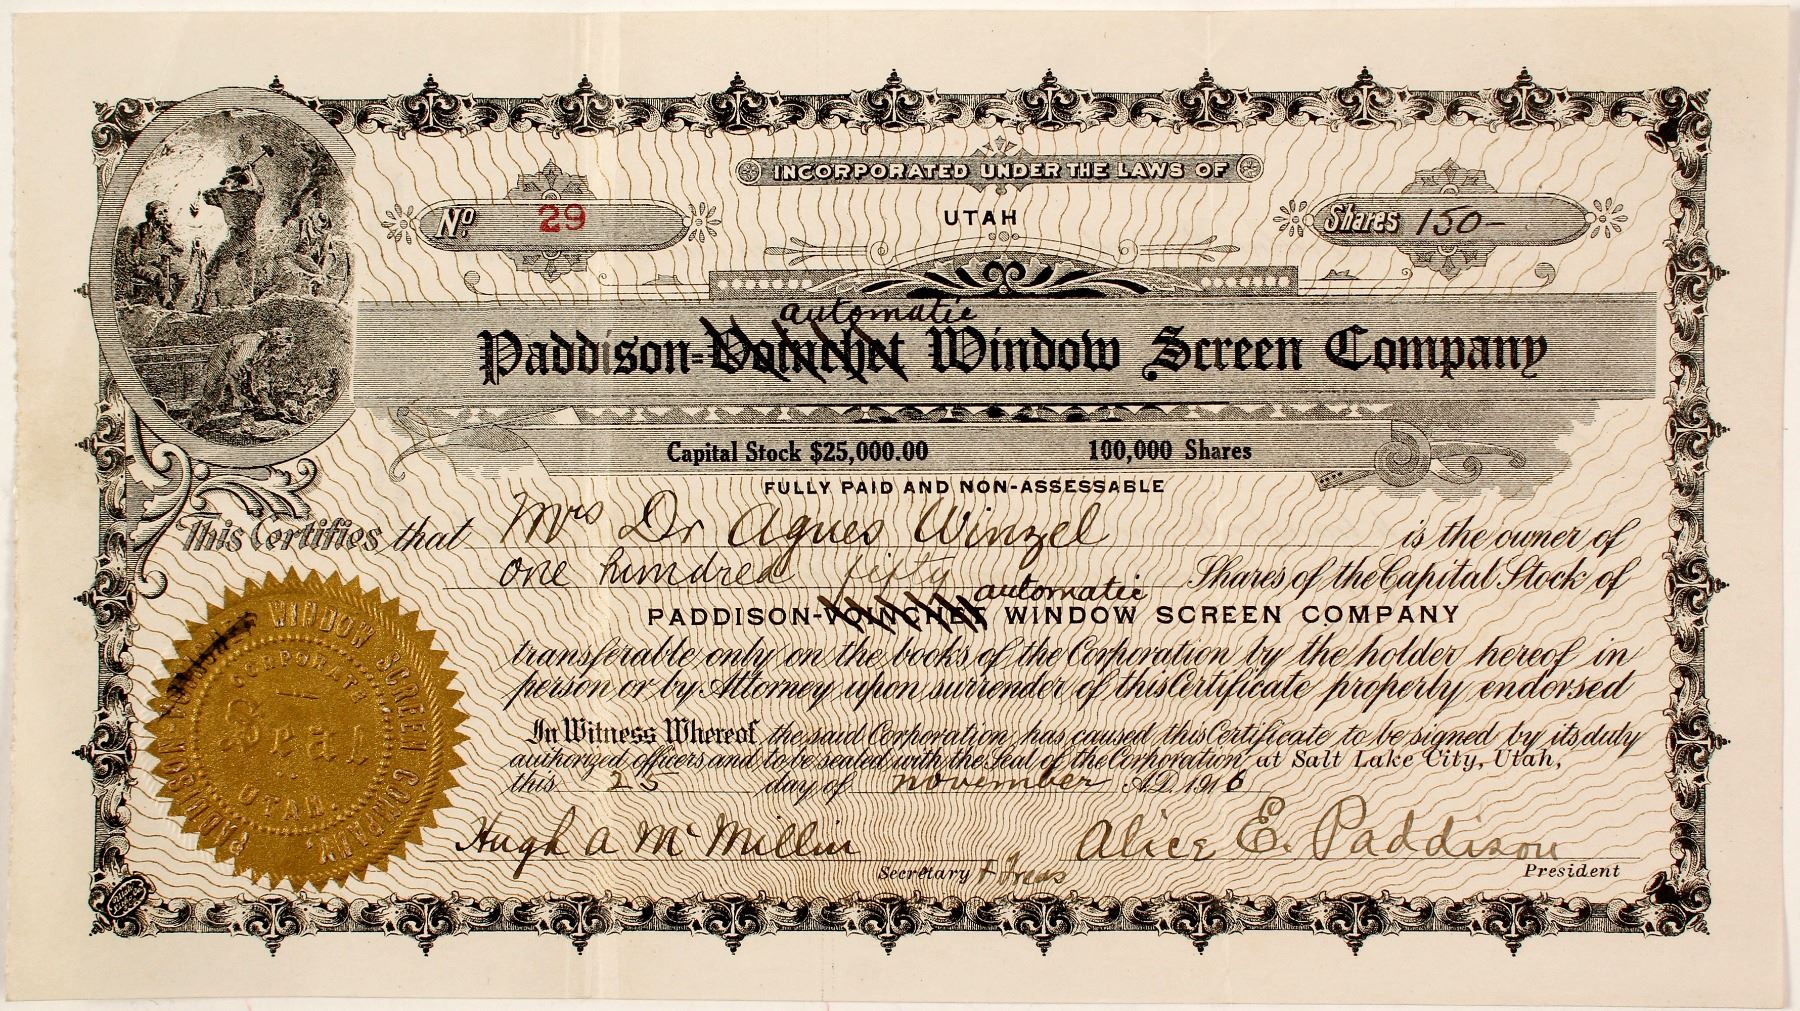 INCORPORATED UNDER THE LAWS OF
UTAH
No. 29
Shares 150-
automatic
Paddison-Voinchet Window Screen Company
Capital Stock $25,000.00 100,000 Shares
FULLY PAID AND NON-ASSESSABLE
This Certifies that Mrs Dr Agnes Winzel is the owner of
one hundred fifty Shares of the Capital Stock of
automatic
PADDISON-VOINCHET WINDOW SCREEN COMPANY
transferable only on the books of the Corporation by the holder hereof in
person or by Attorney upon surrender of this Certificate properly endorsed
In Witness Whereof, the said Corporation has caused this Certificate to be signed by its duly
authorized officers and to be sealed with the Seal of the Corporation at Salt Lake City, Utah,
this 25 day of november A.D. 1916
Hugh A McMillin
Secretary + Treas
Alice E. Paddison
President
PADDISON- WINDOW SCREEN COMPANY,
CORPORATE
Seal
UTAH.